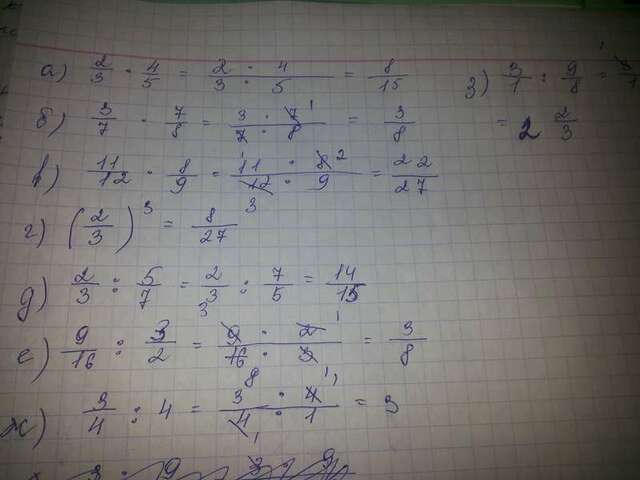 а) 2/3 · 4/5 = 2 · 4 / 3 · 5 = 8/15
з) 3/1 : 9/8 =
б) 3/7 · 7/8 = 3 · 7 / 7 · 8 = 3/8
= 2 2/3
в) 11/12 · 8/9 = 11 · 8 2 / 12 · 9 = 22/27
г) (2/3)³ = 8/27
д) 2/3 : 5/7 = 2/3 : 7/5 = 14/15
е) 9/16 : 3/2 = 9 · 2 / 16 · 3 = 3/8
ж) 3/4 : 4 = 3 · 4 / 4 · 1 = 3